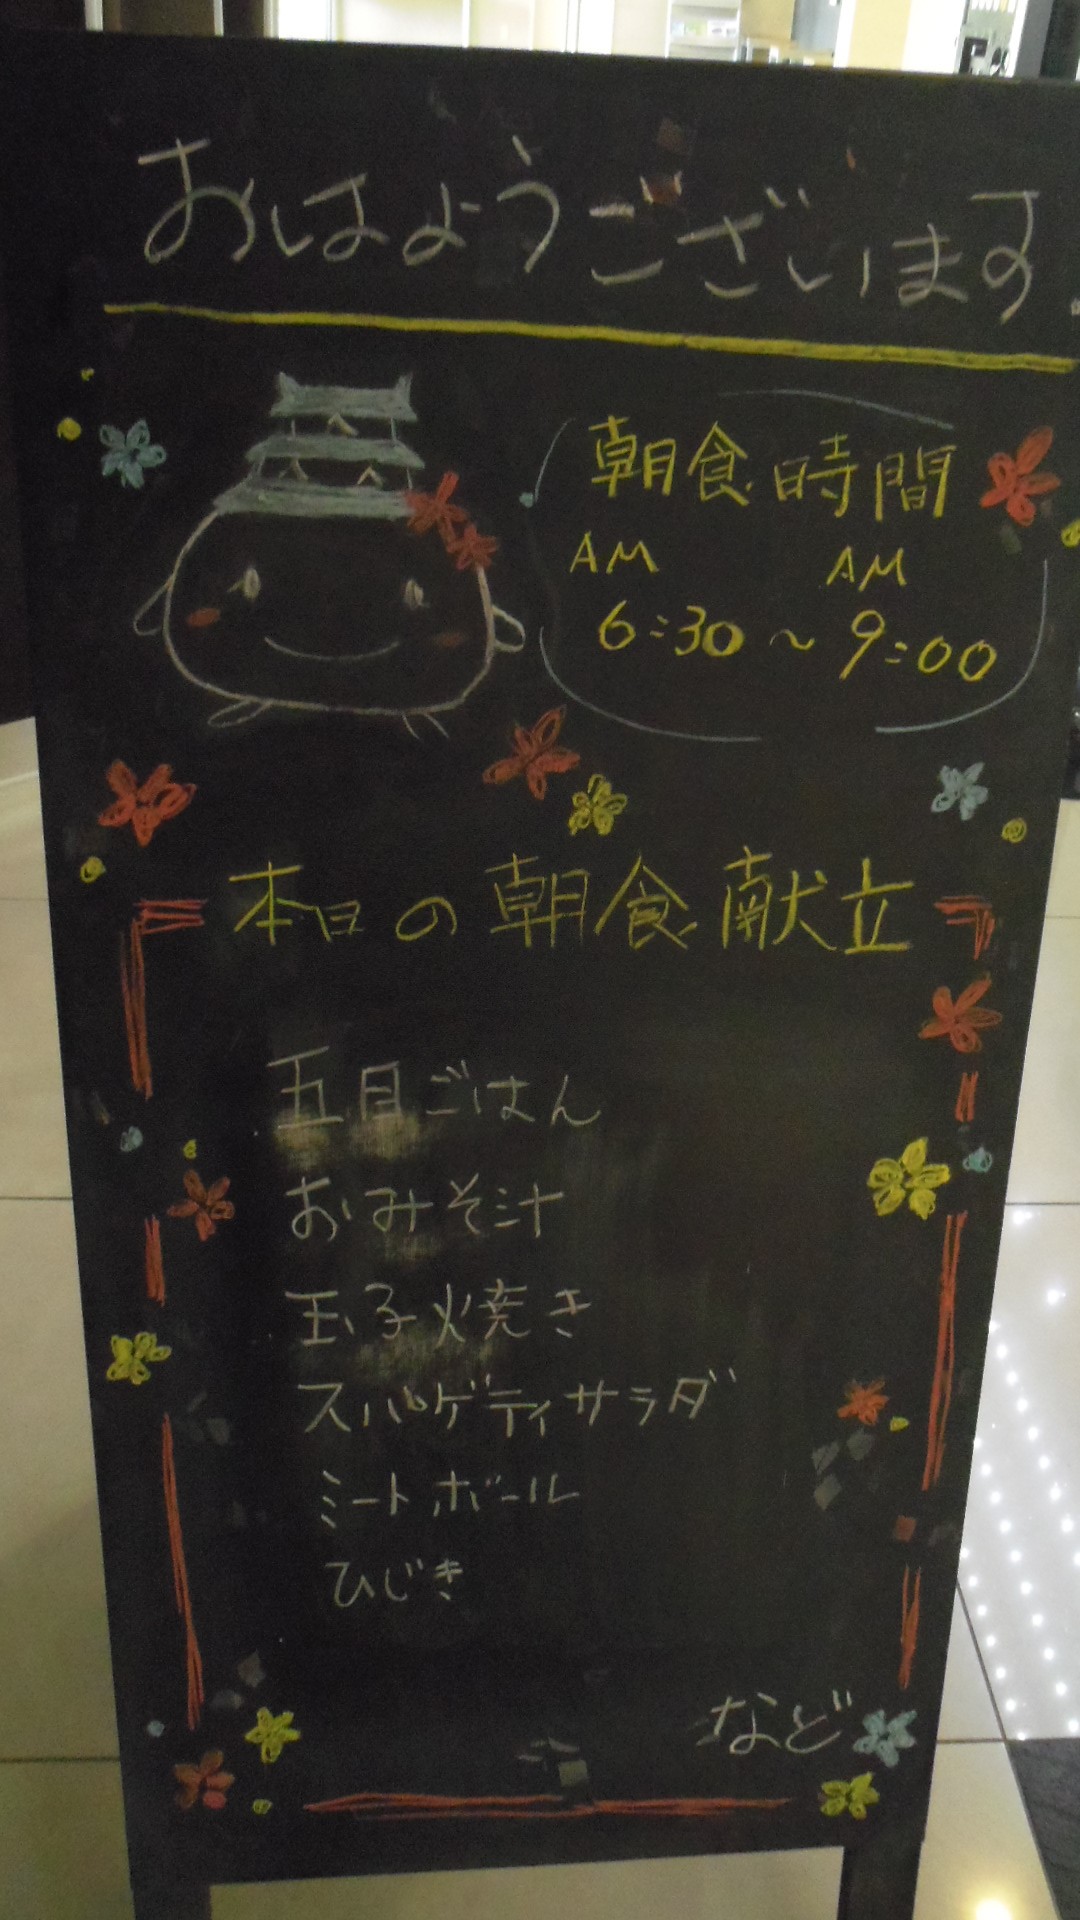 おはようございます。
朝食時間
AM AM
6:30～9:00
本日の朝食献立
五目ごはん
おみそ汁
玉子焼き
スパゲティサラダ
ミートボール
ひじき
など